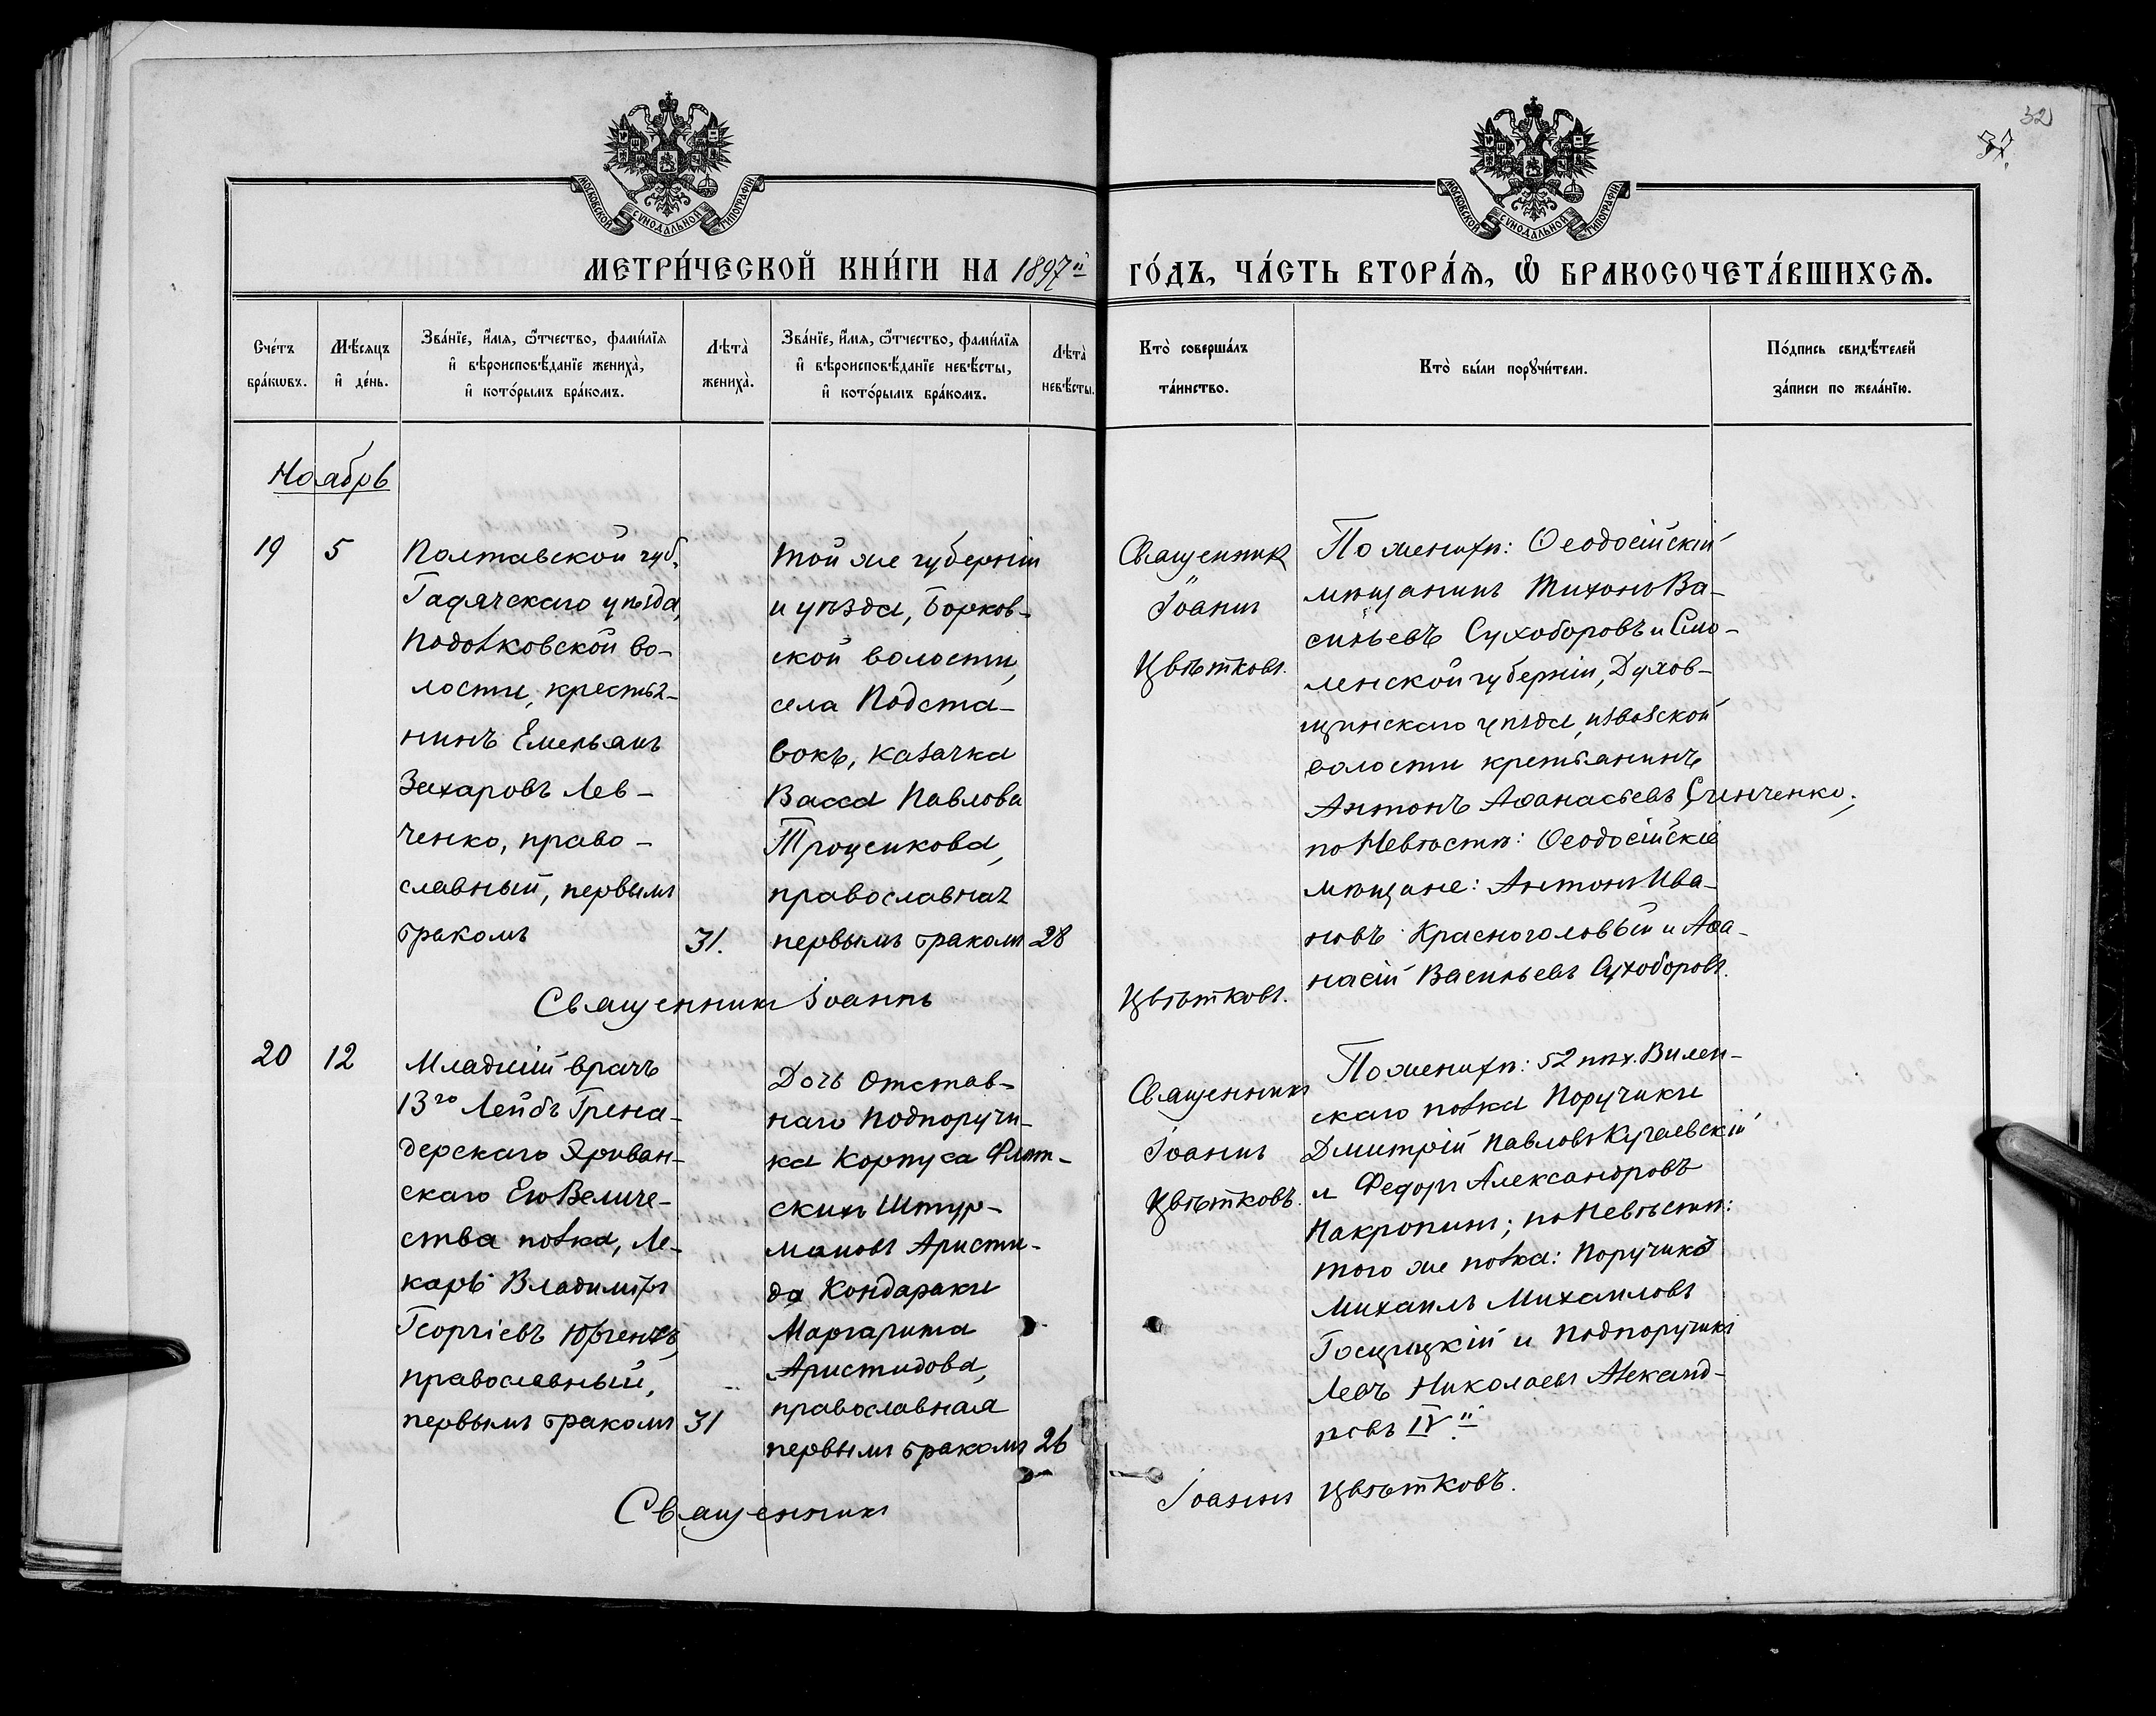 32
31.
МОСКОВСКОЙ СѴНОДАЛЬНОЙ ТИПОГРАФІИ
МОСКОВСКОЙ СѴНОДАЛЬНОЙ ТИПОГРАФІИ
МЕТРИ́ЧЕСКОЙ КНИ́ГИ НА 1897й
ГО́ДЪ, ЧА́СТЬ ВТОРА́Ѧ, Ѽ БРАКОСОЧЕТА́ВШИХСѦ.
Сче́тъ
бра́кѡвъ.
Мѣ́сяцъ
и҆ де́нь.
Зва́нїе, и҆́мя, ѻ҆́тчество, фами́лїя
и҆ вѣроисповѣ́данїе жениха̀,
и҆ кото́рымъ бра́комъ.
Лѣта̀
жениха̀.
Зва́нїе, и҆́мя, ѻ҆́тчество, фами́лїя
и҆ вѣроисповѣ́данїе невѣ́сты,
и҆ кото́рымъ бра́комъ.
Лѣта̀
невѣ́сты.
Кто̀ соверша́лъ
та́инство.
Кто̀ бы́ли порꙋчи́тели.
По́дпись свидѣ́телей
за́писи по жела́нїю.
Ноябрь
19
5
Полтавской губ.
Гадячскаго уѣзда,
Подолковской во-
лости, крестья-
нинъ Емельянъ
Захаровъ Лев-
ченко, право-
славный, первымъ
бракомъ
31.
Той же губерніи
и уѣзда, Борков-
ской волости,
села Подста-
вокъ, казачка
Васса Павлова
Троценкова,
православная
первымъ бракомъ
28
Священникъ
Іоаннъ
Цвѣтковъ.
По женихѣ: Ѳеодосійскій
мѣщанинъ Тихонъ Ва-
сильевъ Сухоборовъ и Смо-
ленской губерніи, Духов-
щинскаго уѣзда, Извозской
волости крестьянинъ
Антонъ Аѳанасьевъ Синченко;
по Невѣстѣ: Ѳеодосійскіе
мѣщане: Антонъ Ива-
новъ Красноголовый и Аѳа-
насій Васильевъ Сухоборовъ.
Священникъ Іоаннъ Цвѣтковъ.
20
12
Младшій врачъ
13го Лейбъ Грена-
дерскаго Эриван-
скаго Его Величе-
ства полка, Ле-
карь Владиміръ
Георгіевъ Юргенсъ,
православный,
первымъ бракомъ
31
Дочь Отстав-
наго Подпоручи-
ка Корпуса Флот-
скихъ Штур-
мановъ Аристи-
да Кондараки
Маргарита
Аристидова,
православная
первымъ бракомъ
26
Священникъ
Іоаннъ
Цвѣтковъ.
По женихѣ: 52 пѣх. Вилен-
скаго полка Поручики
Дмитрій Павловъ Кугаевскій
и Федоръ Александровъ
Накропинъ; по Невѣстѣ:
того же полка: Поручикъ
Михаилъ Михаиловъ
Гощицкій и Подпоручикъ
Левъ Николаевъ Александ-
ровъ IVй
Священникъ Іоаннъ Цвѣтковъ.